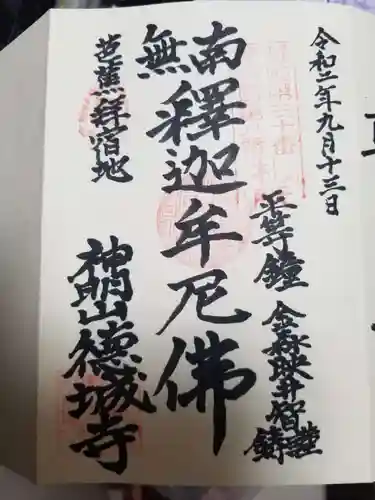 令和二年九月十三日
平等鐘 金森映井智謹鋳
南無釋迦牟尼佛
芭蕉拝宿地
神明山德城寺